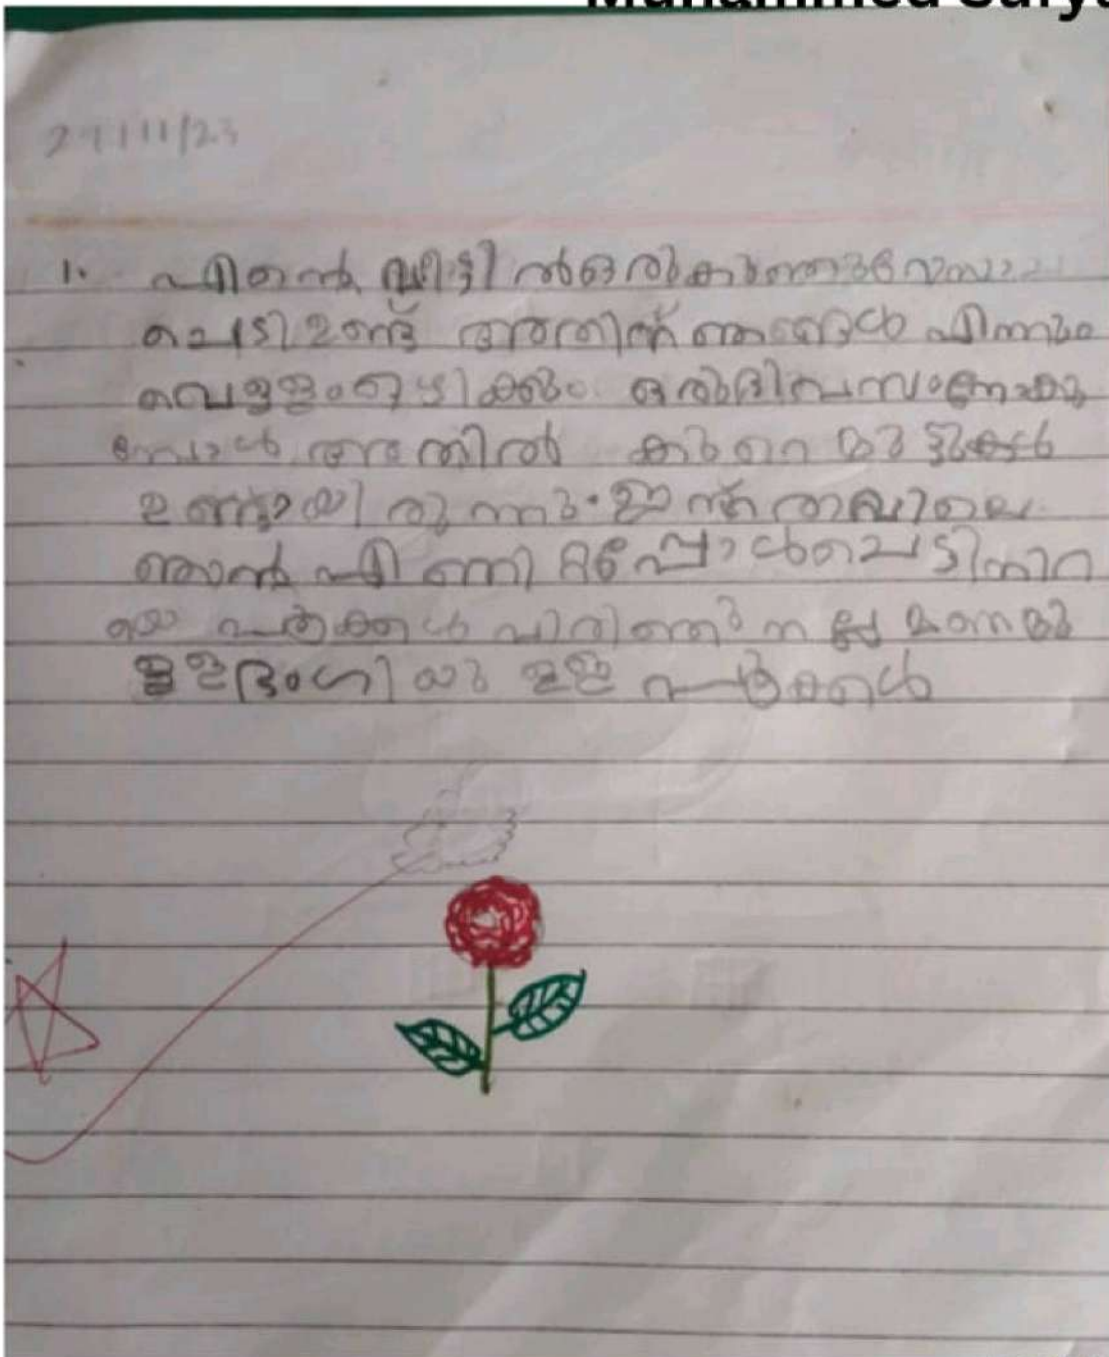 27/11/23
1. എന്റെ വീട്ടിൽ ഒരു കുഞ്ഞു റോസാ
ചെടി ഉണ്ട് അതിന് ഞങ്ങൾ എന്നും
വെള്ളം ഒഴിക്കും ഒരു ദിവസം നോക്കു
മ്പോൾ അതിൽ കുറെ മുട്ടുകൾ
ഉണ്ടായിരുന്നു. ഇന്ന് രാവിലെ
ഞാൻ എണി റ്റപ്പോൾ ചെടി നിറ
യെ പൂക്കൾ വിരിഞ്ഞു നല്ല മണമു
ള്ള ഭംഗിയുള്ള പൂക്കൾ